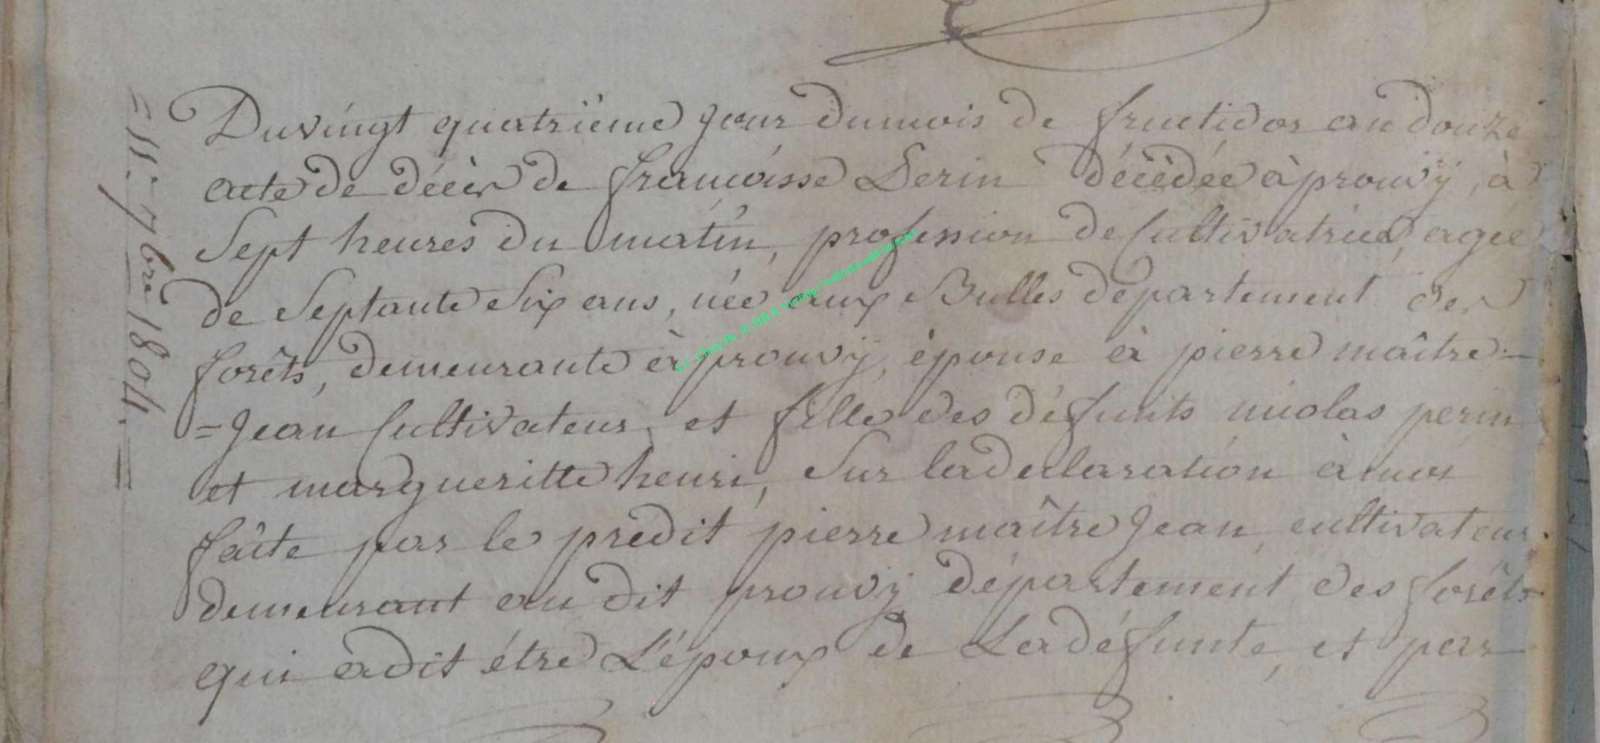 = 11. 7bre 1804. =
Du vingt quatrième Jour du mois de fructidor an douze
acte de décès de françoisse Perin décédée à prouvÿ, à
Sept heures du matin, profession de Cultivatrice, agée
de Septante Six ans, née aux Bulles département des
forêts, demeurante à prouvÿ, épouse à pierre maître=
=Jean Cultivateur, et fille des défunts nicolas perin
et margueritte henri, Sur la declaration à moi
faîte par le predit pierre maître Jean, cultivateur
demeurant au dit prouvÿ département des forêts
qui a dit étre L'époux de La défunte, et par